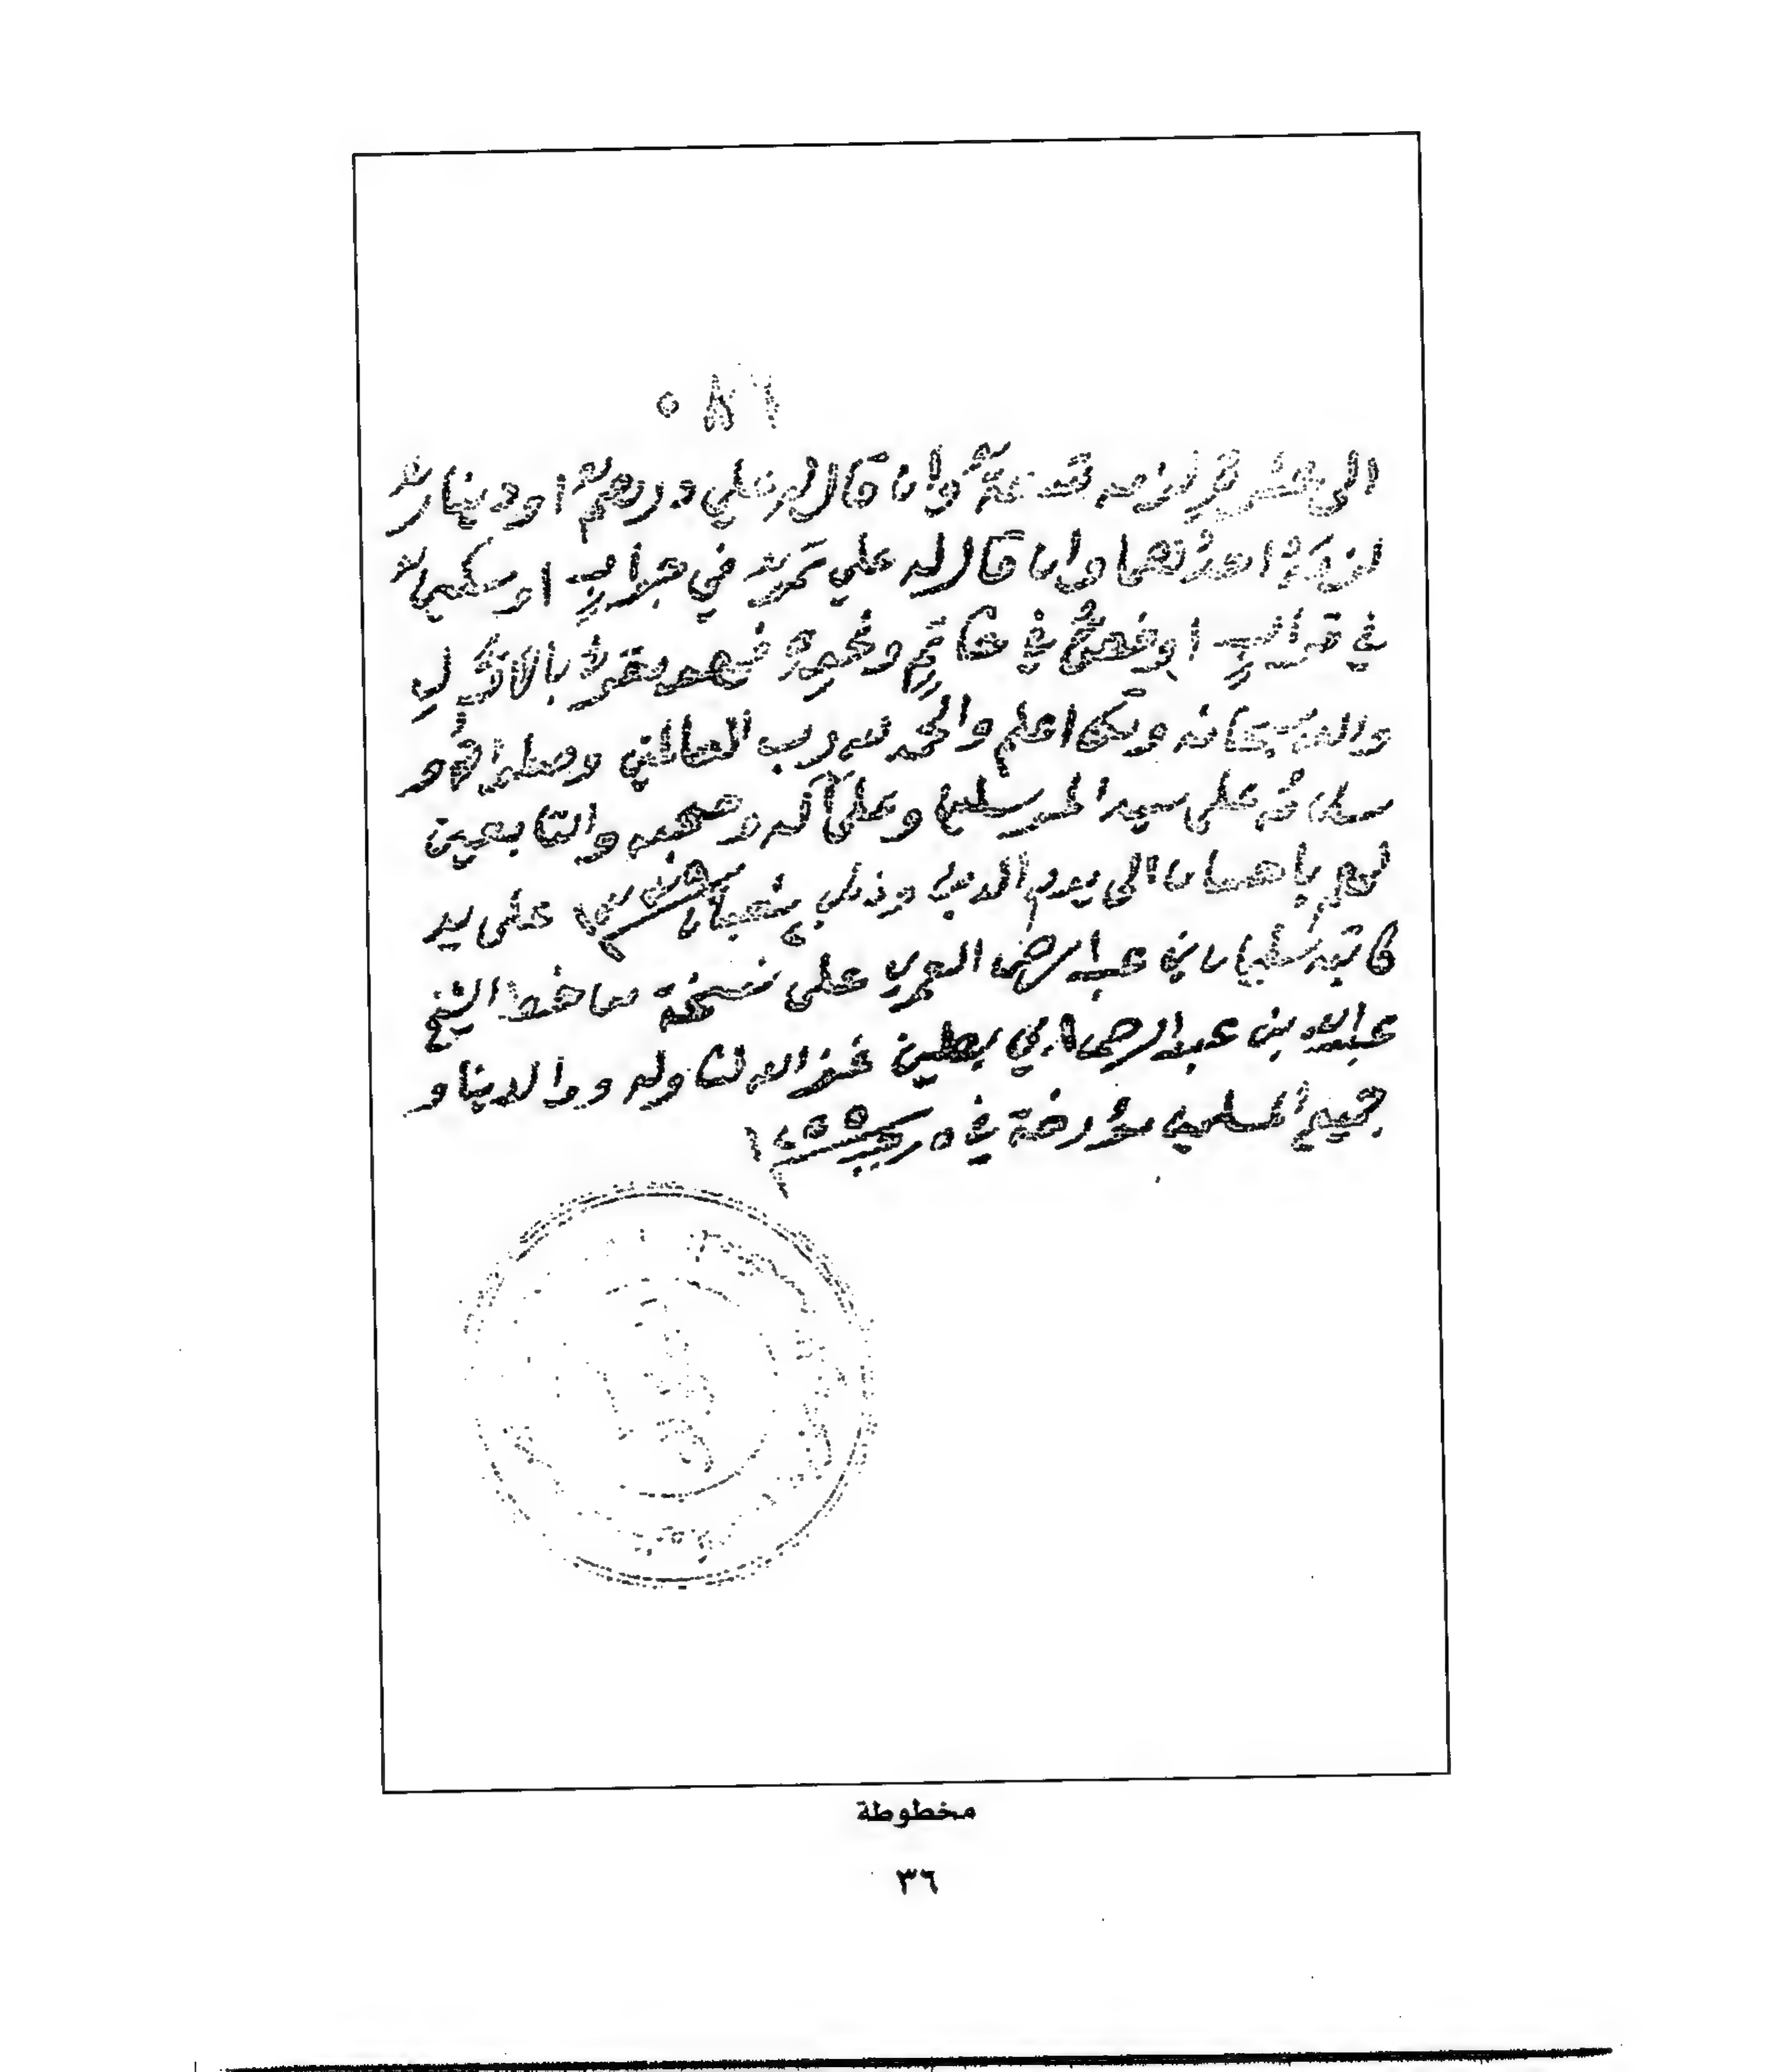 الى عشرةٍ لزمه تسعةٌ وان قال له علي درهمٌ او دينارٌ
لزمه احدهما وان قال له علي تمرٌ في جرابٍ او سكينٌ
في قرابٍ او فصٌ في خاتمٍ ونحوه فهو مقرٌ بالاوّلِ
والله سبحانه وتعالى اعلم والحمد لله رب العالمين وصلواته و
سلامه على سيد المرسلين وعلى آله وصحبه والتابعين
لهم باحسان الى يوم الدين وذلك بشعبان على يد
كاتبه سليمان بن عبد الرحمن العمري على نسخة من خط الشيخ
عبد الله بن عبد الرحمن ابي بطين غفر الله لنا وله ووالدينا و
جميع المسلمين مؤرخة في ٥ رجب
مخطوطة
٣٦